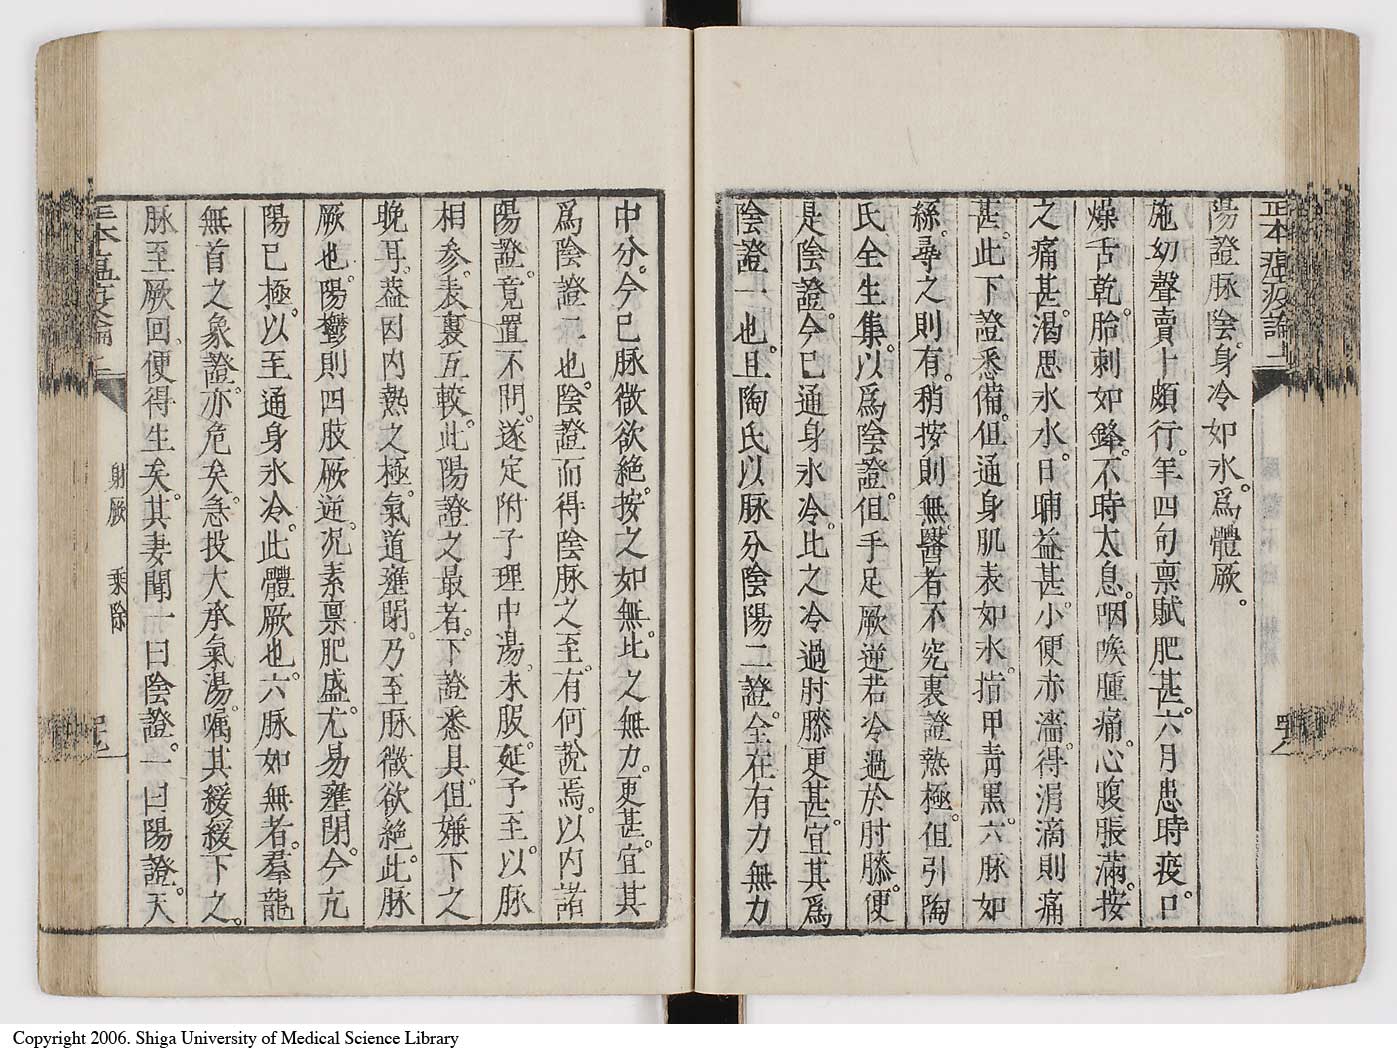 正本瘟疫論
陽證脉陰。身冷如氷。爲體厥。
施幼聲賣卜頗行。年四旬禀賦肥甚。六月患時疫。口
燥舌乾。胎刺如鋒。不時太息。咽喉腫痛。心腹脹滿。按
之痛甚。渴思氷水。日晡益甚。小便赤濇。得涓滴則痛
甚。此下證悉備。但通身肌表如氷。指甲青黑。六脉如
絲。尋之則有。稍按則無。醫者不究裏證熱極。但引陶
氏全生集。以爲陰證。但手足厥逆若冷過於肘膝。便
是陰證。今已通身氷冷。比之冷過肘膝更甚。宜其爲
陰證一也。且陶氏以脉分陰陽二證。全在有力無力
中分。今已脉微欲絶。按之如無。比之無力。更甚。宜其
爲陰證二也。陰證而得陰脉之至。有何說焉。以内諸
陽證。竟置不問。遂定附子理中湯。未服。延予至。以脉
相參。表裏互較。此陽證之最者。下證悉具。但嫌下之
晚耳。葢因内熱之極。氣道壅閉。乃至脉微欲絶。此脉
厥也。陽鬱則四肢厥逆。况素禀肥盛。尤易壅閉。今亢
陽已極。以至通身氷冷。此體厥也。六脉如無者。羣龍
無首之象。證亦危矣。急投大承氣湯。囑其緩緩下之。
脉至厥回。便得生矣。其妻聞一曰陰證。一曰陽證。天
射厥 乘除
正本瘟疫論
Copyright 2006. Shiga University of Medical Science Library